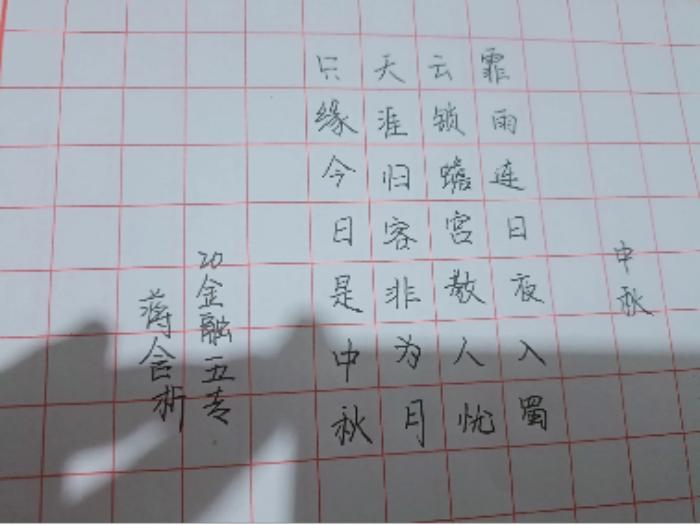 中秋
霏雨连日夜入蜀
云锁蟾宫散人忧
天涯归客非为月
只缘今日是中秋
20金融五专
蒋含析